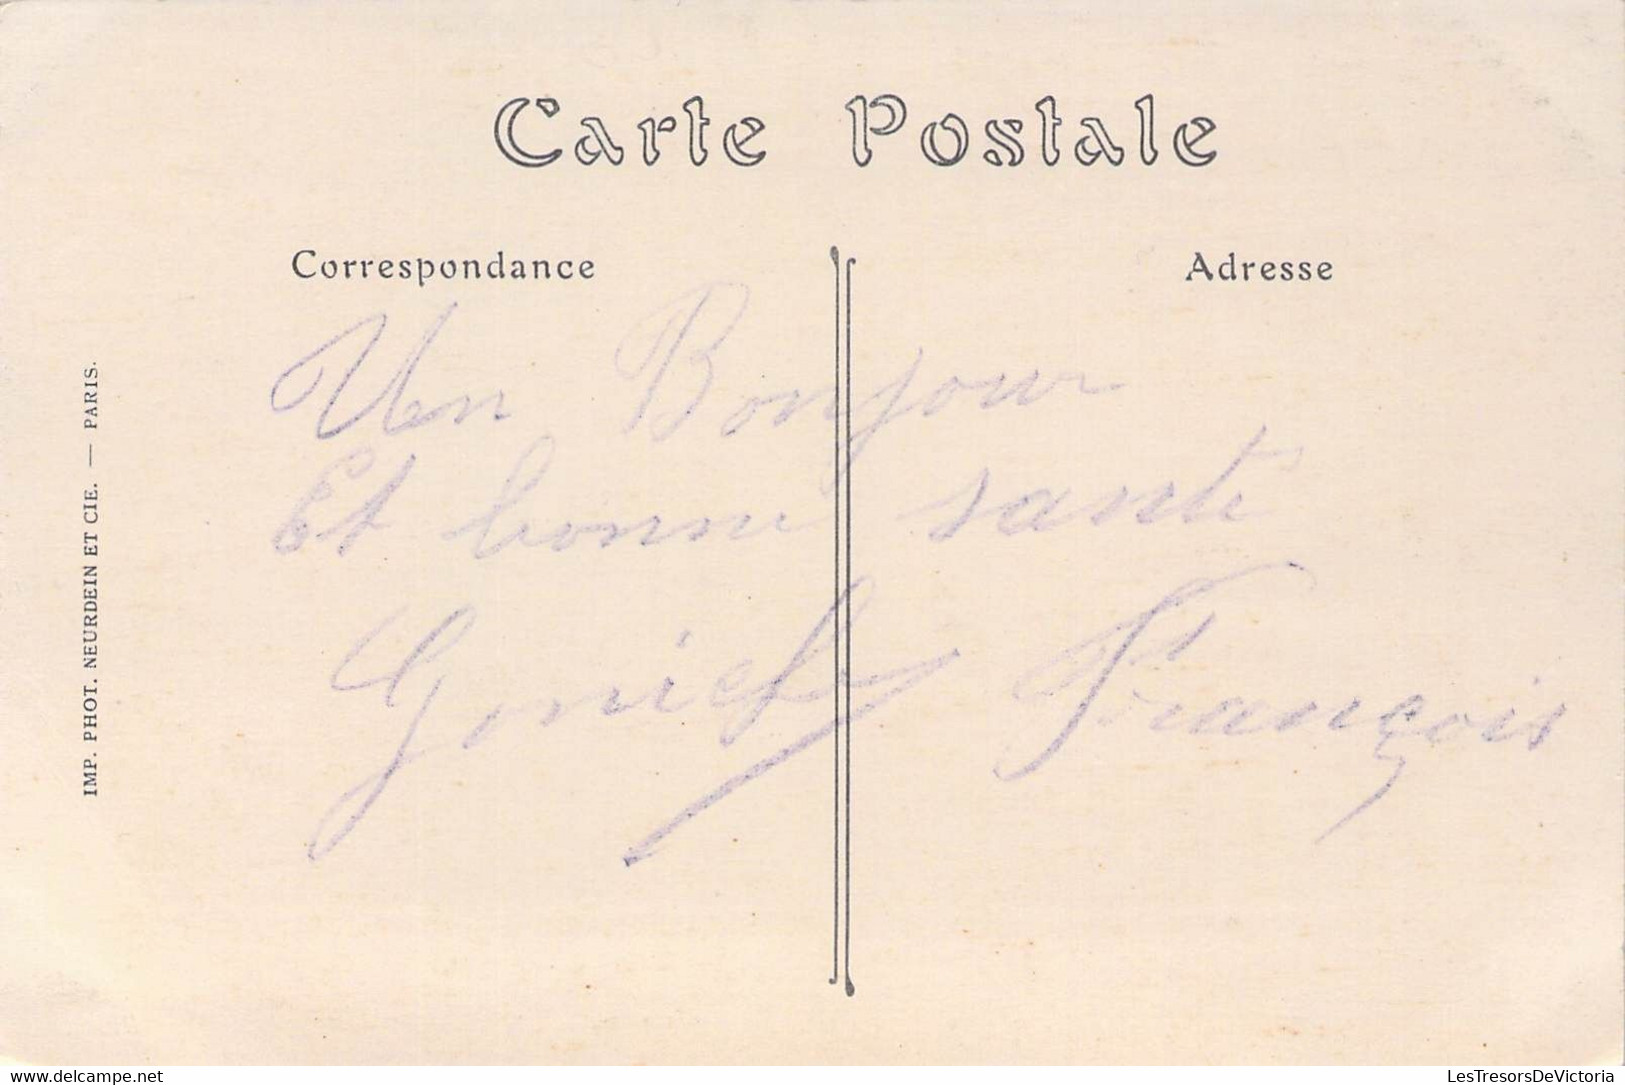 Carte Postale
Correspondance
Adresse
Un Bonjour
Et bonne santé
François
IMP. PHOT. NEURDEIN ET CIE. — PARIS.
www.delcampe.net
LesTresorsDeVictoria